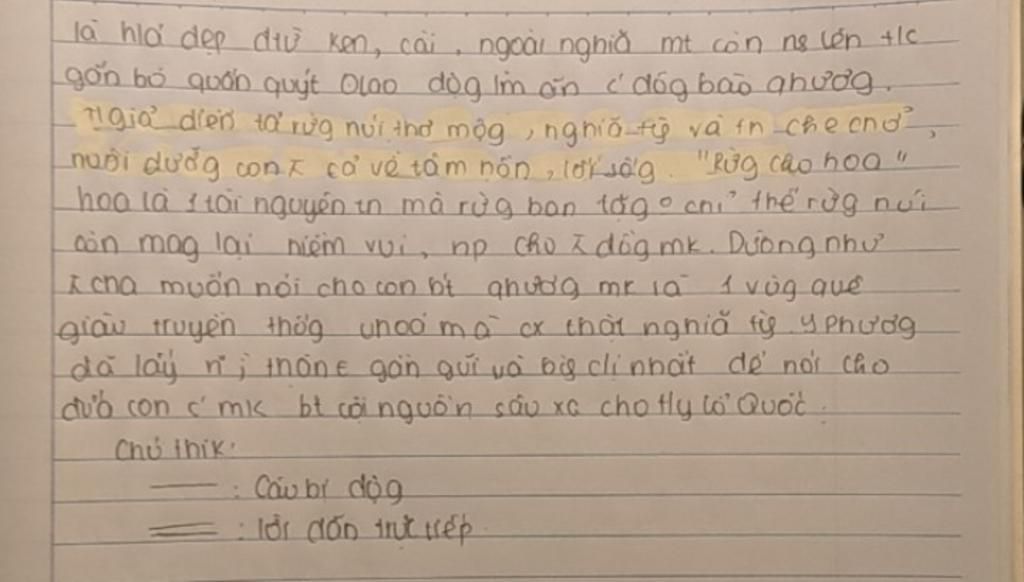 là h/a đẹp đtừ ken, cài, ngoài nghĩa mt còn ns lên t/c
gắn bó quấn quýt 0 lao độg làm ăn c̉ đồg bào qhươg.
T/giả diễn tả rừg núi thơ mộg, nghĩa tìh và tn che chở,
nuôi dưỡg con ng cả về tâm hồn, lối sốg. "Rừg cho hoa"
hoa là 1 tài nguyên tn mà rừg ban tặg 0 chỉ thế rừg núi
còn mag lại niềm vui, hp cho ng đồg mk. Dường như
ng cha muốn nói cho con bt qhươg mk là 1 vùg quê
giàu truyền thốg vhoá mà cx thật nghĩa tìh Y Phươg
đã lấy n~ j thân t gần gũi và bìh dị nhất để nói cho
đứa con c̉ mk bt cội nguồn sâu xa cho tìy Tổ Quốc.
Chú thík:
: Câu bị độg
: lời dẫn trực tiếp.